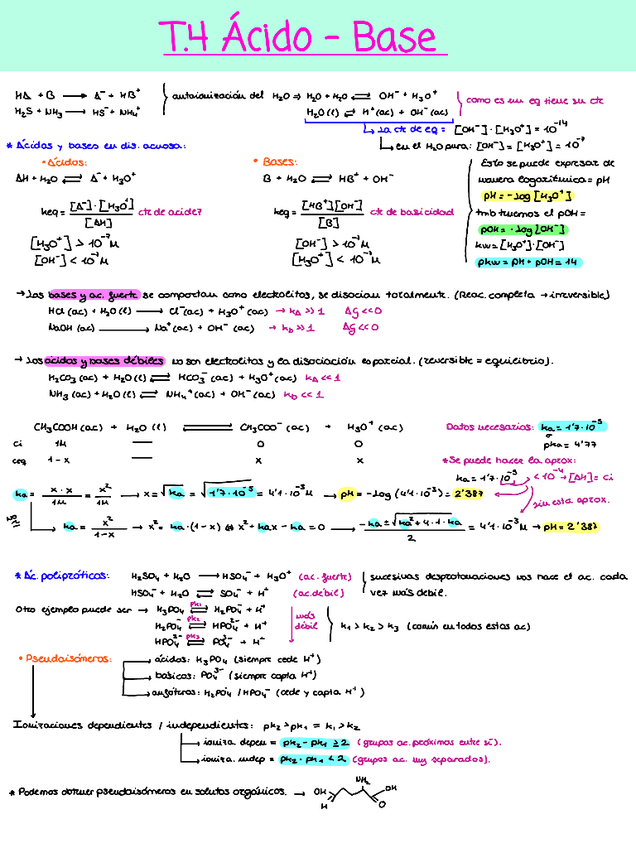 T.4 Ácido - Base
HA + B → A⁻ + HB⁺
H₂S + NH₃ → HS⁻ + NH₄⁺
autoionización del H₂O ⇒ H₂O + H₂O ⇌ OH⁻ + H₃O⁺
H₂O (l) ⇌ H⁺(ac) + OH⁻ (ac)
como es un eq tiene su cte
↳ la cte de eq = [OH⁻]·[H₃O⁺] = 10⁻¹⁴
↳ en el H₂O pura: [OH⁻] = [H₃O⁺] = 10⁻⁷
* Ácidos y bases en dis. acuosa:
• Ácidos:
AH + H₂O ⇌ A⁻ + H₃O⁺
keq = [A⁻]·[H₃O⁺] / [AH] cte de acidez
[H₃O⁺] > 10⁻⁷ M
[OH⁻] < 10⁻⁷ M
• Bases:
B + H₂O ⇌ HB⁺ + OH⁻
keq = [HB⁺][OH⁻] / [B] cte de basicidad
[OH⁻] > 10⁻⁷ M
[H₃O⁺] < 10⁻⁷ M
Esto se puede expresar de
manera logarítmica = pH
pH = -log [H₃O⁺]
tmb tenemos el pOH =
pOH = -log [OH⁻]
kw = [H₃O⁺]·[OH⁻]
pkw = pH + pOH = 14
→ Las bases y ac. fuerte se comportan como electrolitos, se disocian totalmente. (Reac. completa → irreversible)
HCl (ac) + H₂O (l) → Cl⁻(ac) + H₃O⁺ (ac) → kₐ >> 1 ΔG << 0
NaOH (ac) → Na⁺(ac) + OH⁻ (ac) → k_b >> 1 ΔG << 0
→ Los ácidos y bases débiles no son electrolitos y la disociación es parcial. (reversible = equilibrio).
H₂CO₃ (ac) + H₂O (l) ⇌ HCO₃⁻ (ac) + H₃O⁺ (ac) kₐ << 1
NH₃ (ac) + H₂O (l) ⇌ NH₄⁺ (ac) + OH⁻ (ac) k_b << 1
CH₃COOH (ac) + H₂O (l) ⇌ CH₃COO⁻ (ac) + H₃O⁺ (ac)
ci 1M — 0 0
ceq 1-x — x x
Datos necesarios: ka = 1'7·10⁻⁵
o
pka = 4'77
* Se puede hacer la aprox:
ka = 1'7·10⁻⁵ < 10⁻⁴ → [AH] = ci
sin esta aprox.
ka = x·x / 1M = x² / 1M → x = √ka = √1'7·10⁻⁵ = 4'1·10⁻³ M → pH = -log (4'1·10⁻³) = 2'387
ka = x² / 1-x → x² = ka·(1-x) ⇔ x² + kax - ka = 0 → -ka ± √ka² + 4·1·ka / 2 = 4'1·10⁻³ M → pH = 2'387
* Ác. polipróticos: H₂SO₄ + H₂O → HSO₄⁻ + H₃O⁺ (ac. fuerte)
HSO₄⁻ + H₂O ⇌ SO₄⁻ + H⁺ (ac. débil)
sucesivas desprotonaciones nos hace el ac. cada
vez más débil.
Otro ejemplo puede ser → H₃PO₄ pk₁ ⇌ H₂PO₄⁻ + H⁺
H₂PO₄⁻ pk₂ ⇌ HPO₄²⁻ + H⁺
HPO₄²⁻ pk₃ ⇌ PO₄³⁻ + H⁺
más
débil
k₁ > k₂ > k₃ (común en todos estos ac)
• Pseudoisómeros:
→ ácidos: H₃PO₄ (siempre cede H⁺)
→ básicos: PO₄³⁻ (siempre capta H⁺)
→ anfóteros: H₂PO₄⁻ / HPO₄⁻ (cede y capta H⁺)
Ionizaciones dependientes / independientes: pk₂ > pk₁ = k₁ > k₂
→ ioniza. depen = pk₂ - pk₁ ≥ 2 (grupos ac. próximos entre sí).
→ ioniza. indep = pk₂ - pk₁ < 2 (grupos ac. muy separados).
* Podemos obtener pseudoisómeros en solutos orgánicos. →
NH₂
OH
OH
H
O